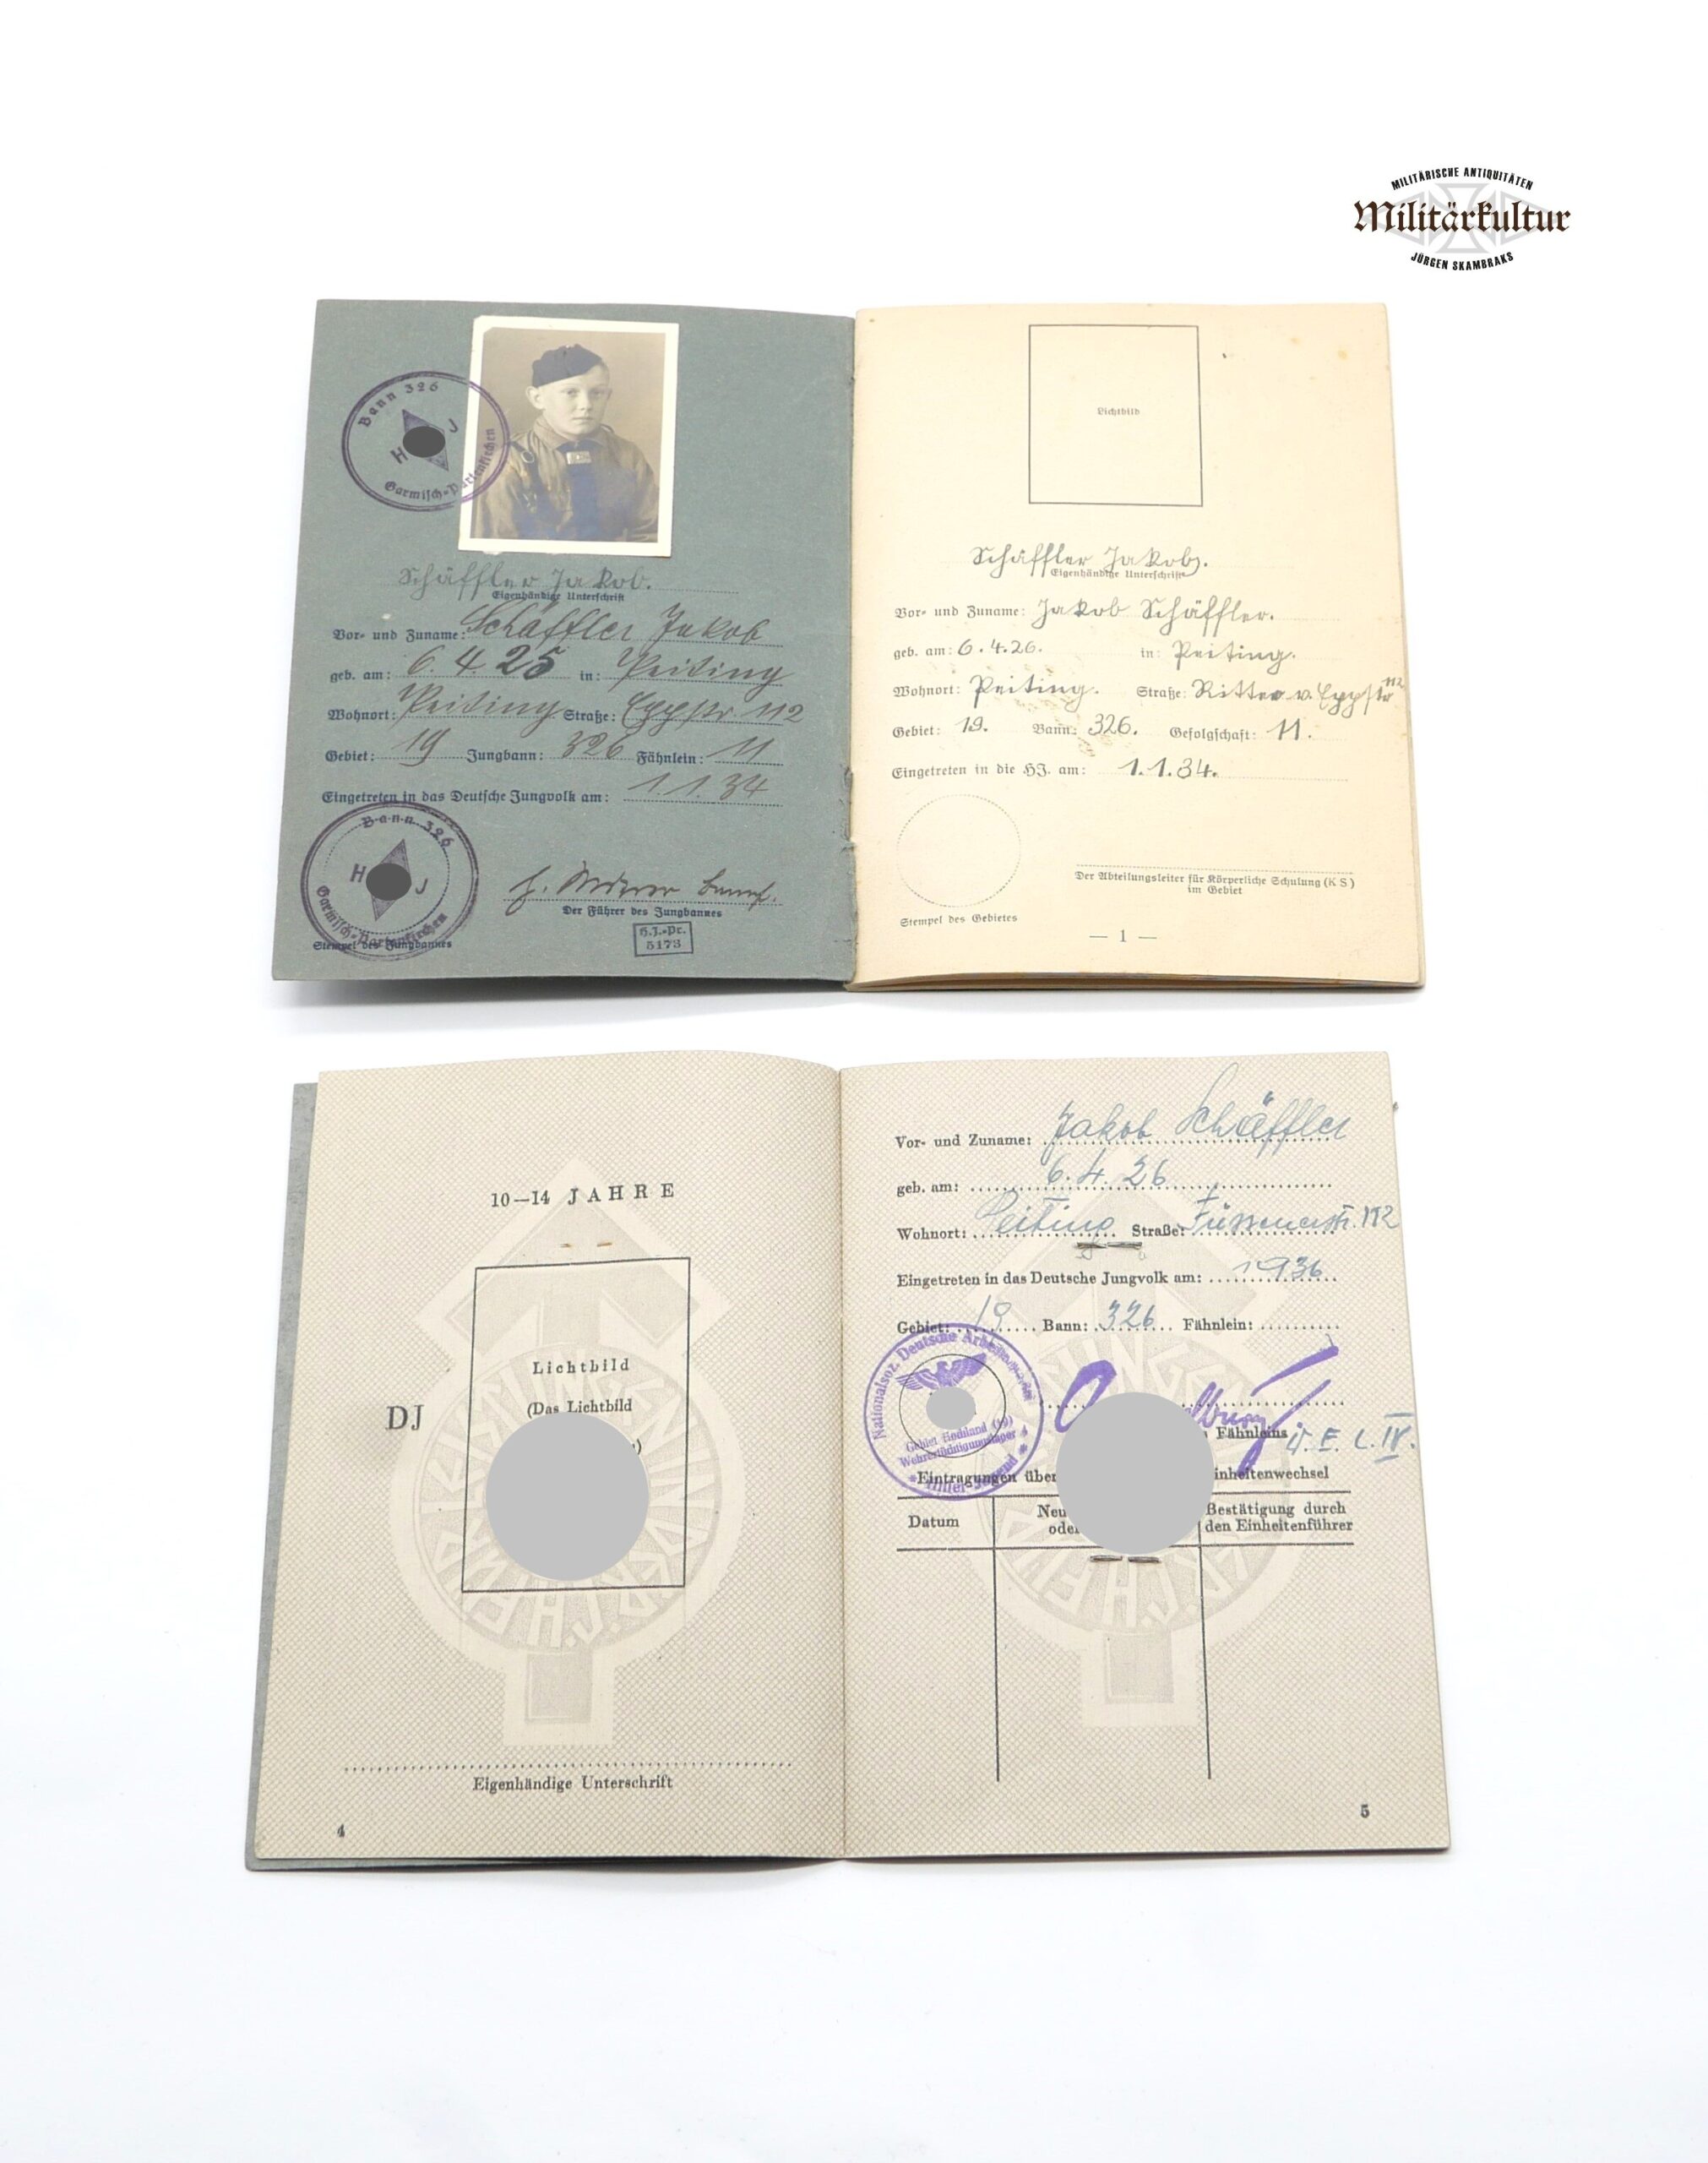 MILITÄRISCHE ANTIQUITÄTEN
Militärkultur
JÜRGEN SKAMBRAKS
Bann 326
H J
Garmisch-Partenkirchen
Schäffler Jakob.
Eigenhändige Unterschrift
Vor- und Zuname: Schäffler Jakob
geb. am: 6. 4. 25 in: Peiting
Wohnort: Peiting Straße: Eppstr. 112
Gebiet: 19 Jungbann: 326 Fähnlein: 11
Eingetreten in das Deutsche Jungvolk am: 1. 1. 34
Bann 326
H J
Garmisch-Partenkirchen
Stempel des Jungbannes
Der Führer des Jungbannes
H.J.-Pr.
5173
Lichtbild
Schäffler Jakob.
Eigenhändige Unterschrift
Vor- und Zuname: Jakob Schäffler.
geb. am: 6. 4. 26. in: Peiting.
Wohnort: Peiting. Straße: Ritter v. Eppstr 112
Gebiet: 19. Bann: 326. Gefolgschaft: 11.
Eingetreten in die HJ. am: 1. 1. 34.
Der Abteilungsleiter für Körperliche Schulung (KS)
im Gebiet
Stempel des Gebietes
— 1 —
10—14 JAHRE
Lichtbild
(Das Lichtbild
DJ
Eigenhändige Unterschrift
4
Vor- und Zuname: Jakob Schäffler
geb. am: 6. 4. 26
Wohnort: Peiting Straße: Füssenerstr. 112
Eingetreten in das Deutsche Jungvolk am: 1936
Gebiet: 19 Bann: 326 Fähnlein:
Nationalsoz. Deutsche Arbeiterpartei
Gebiet Hochland (19)
Wehrertüchtigungslager 4
* Hitler-Jugend *
Fähnleins
W. E. L. IV.
Eintragungen über inheitenwechsel
Datum
Bestätigung durch
den Einheitenführer
5